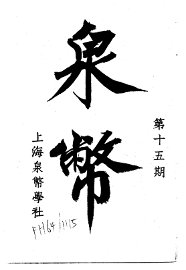 泉幣
第十五期
上海泉幣學社